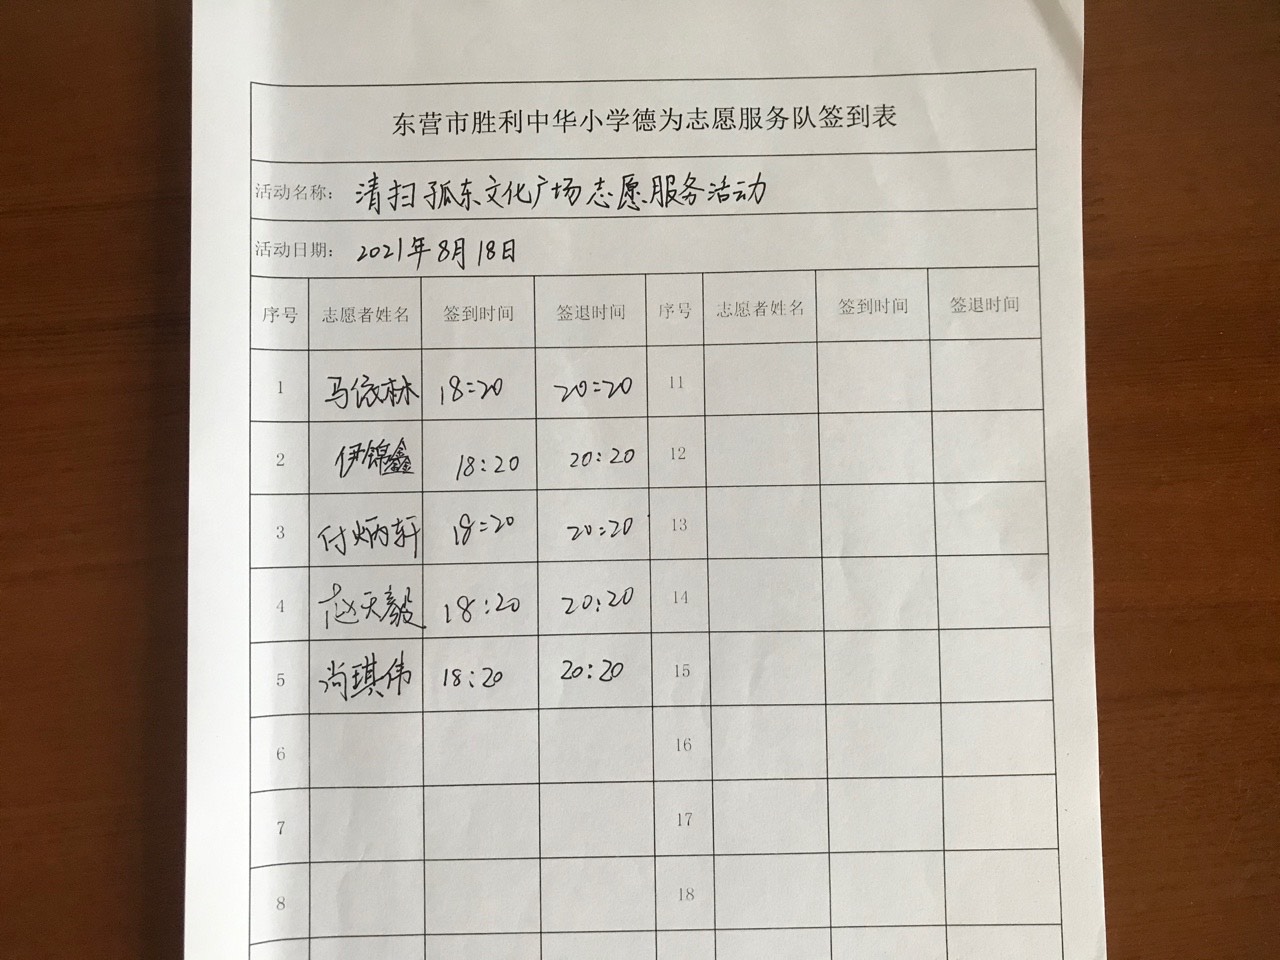 东营市胜利中华小学德为志愿服务队签到表
活动名称： 清扫孤东文化广场志愿服务活动
活动日期： 2021年8月18日
序号 志愿者姓名 签到时间 签退时间 序号 志愿者姓名 签到时间 签退时间
1 马依林 18:20 20:20 11
2 伊锦鑫 18:20 20:20 12
3 付炳轩 18:20 20:20 13
4 赵天毅 18:20 20:20 14
5 尚琪伟 18:20 20:20 15
6 16
7 17
8 18